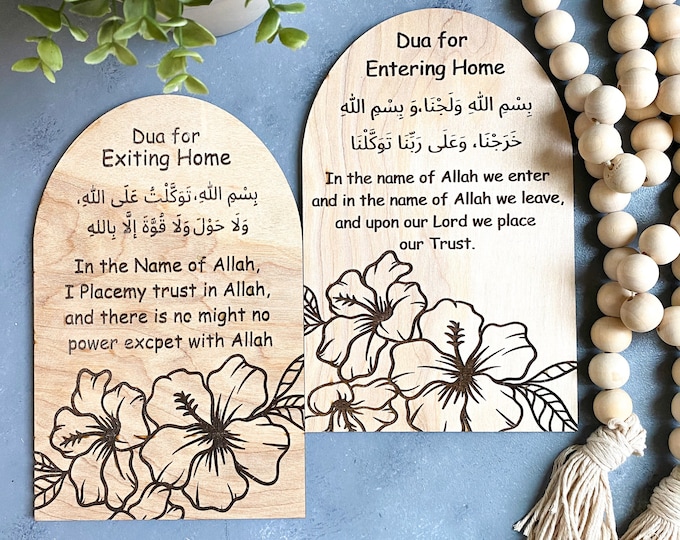 Dua for
Exiting Home
بِسْمِ اللهِ، تَوَكَّلْتُ عَلَى اللهِ،
وَلَا حَوْلَ وَلَا قُوَّةَ إِلَّا بِاللهِ
In the Name of Allah,
I Placemy trust in Allah,
and there is no might no
power excpet with Allah
Dua for
Entering Home
بِسْمِ اللهِ وَلَجْنَا، وَ بِسْمِ اللهِ
خَرَجْنَا، وَعَلَى رَبِّنَا تَوَكَّلْنَا
In the name of Allah we enter
and in the name of Allah we leave,
and upon our Lord we place
our Trust.